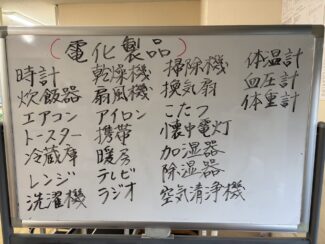 (電化製品)
時計
炊飯器
エアコン
トースター
冷蔵庫
レンジ
洗濯機
乾燥機
扇風機
アイロン
携帯
暖房
テレビ
ラジオ
掃除機
換気扇
こたつ
懐中電灯
加湿器
除湿器
空気清浄機
体温計
血圧計
体重計